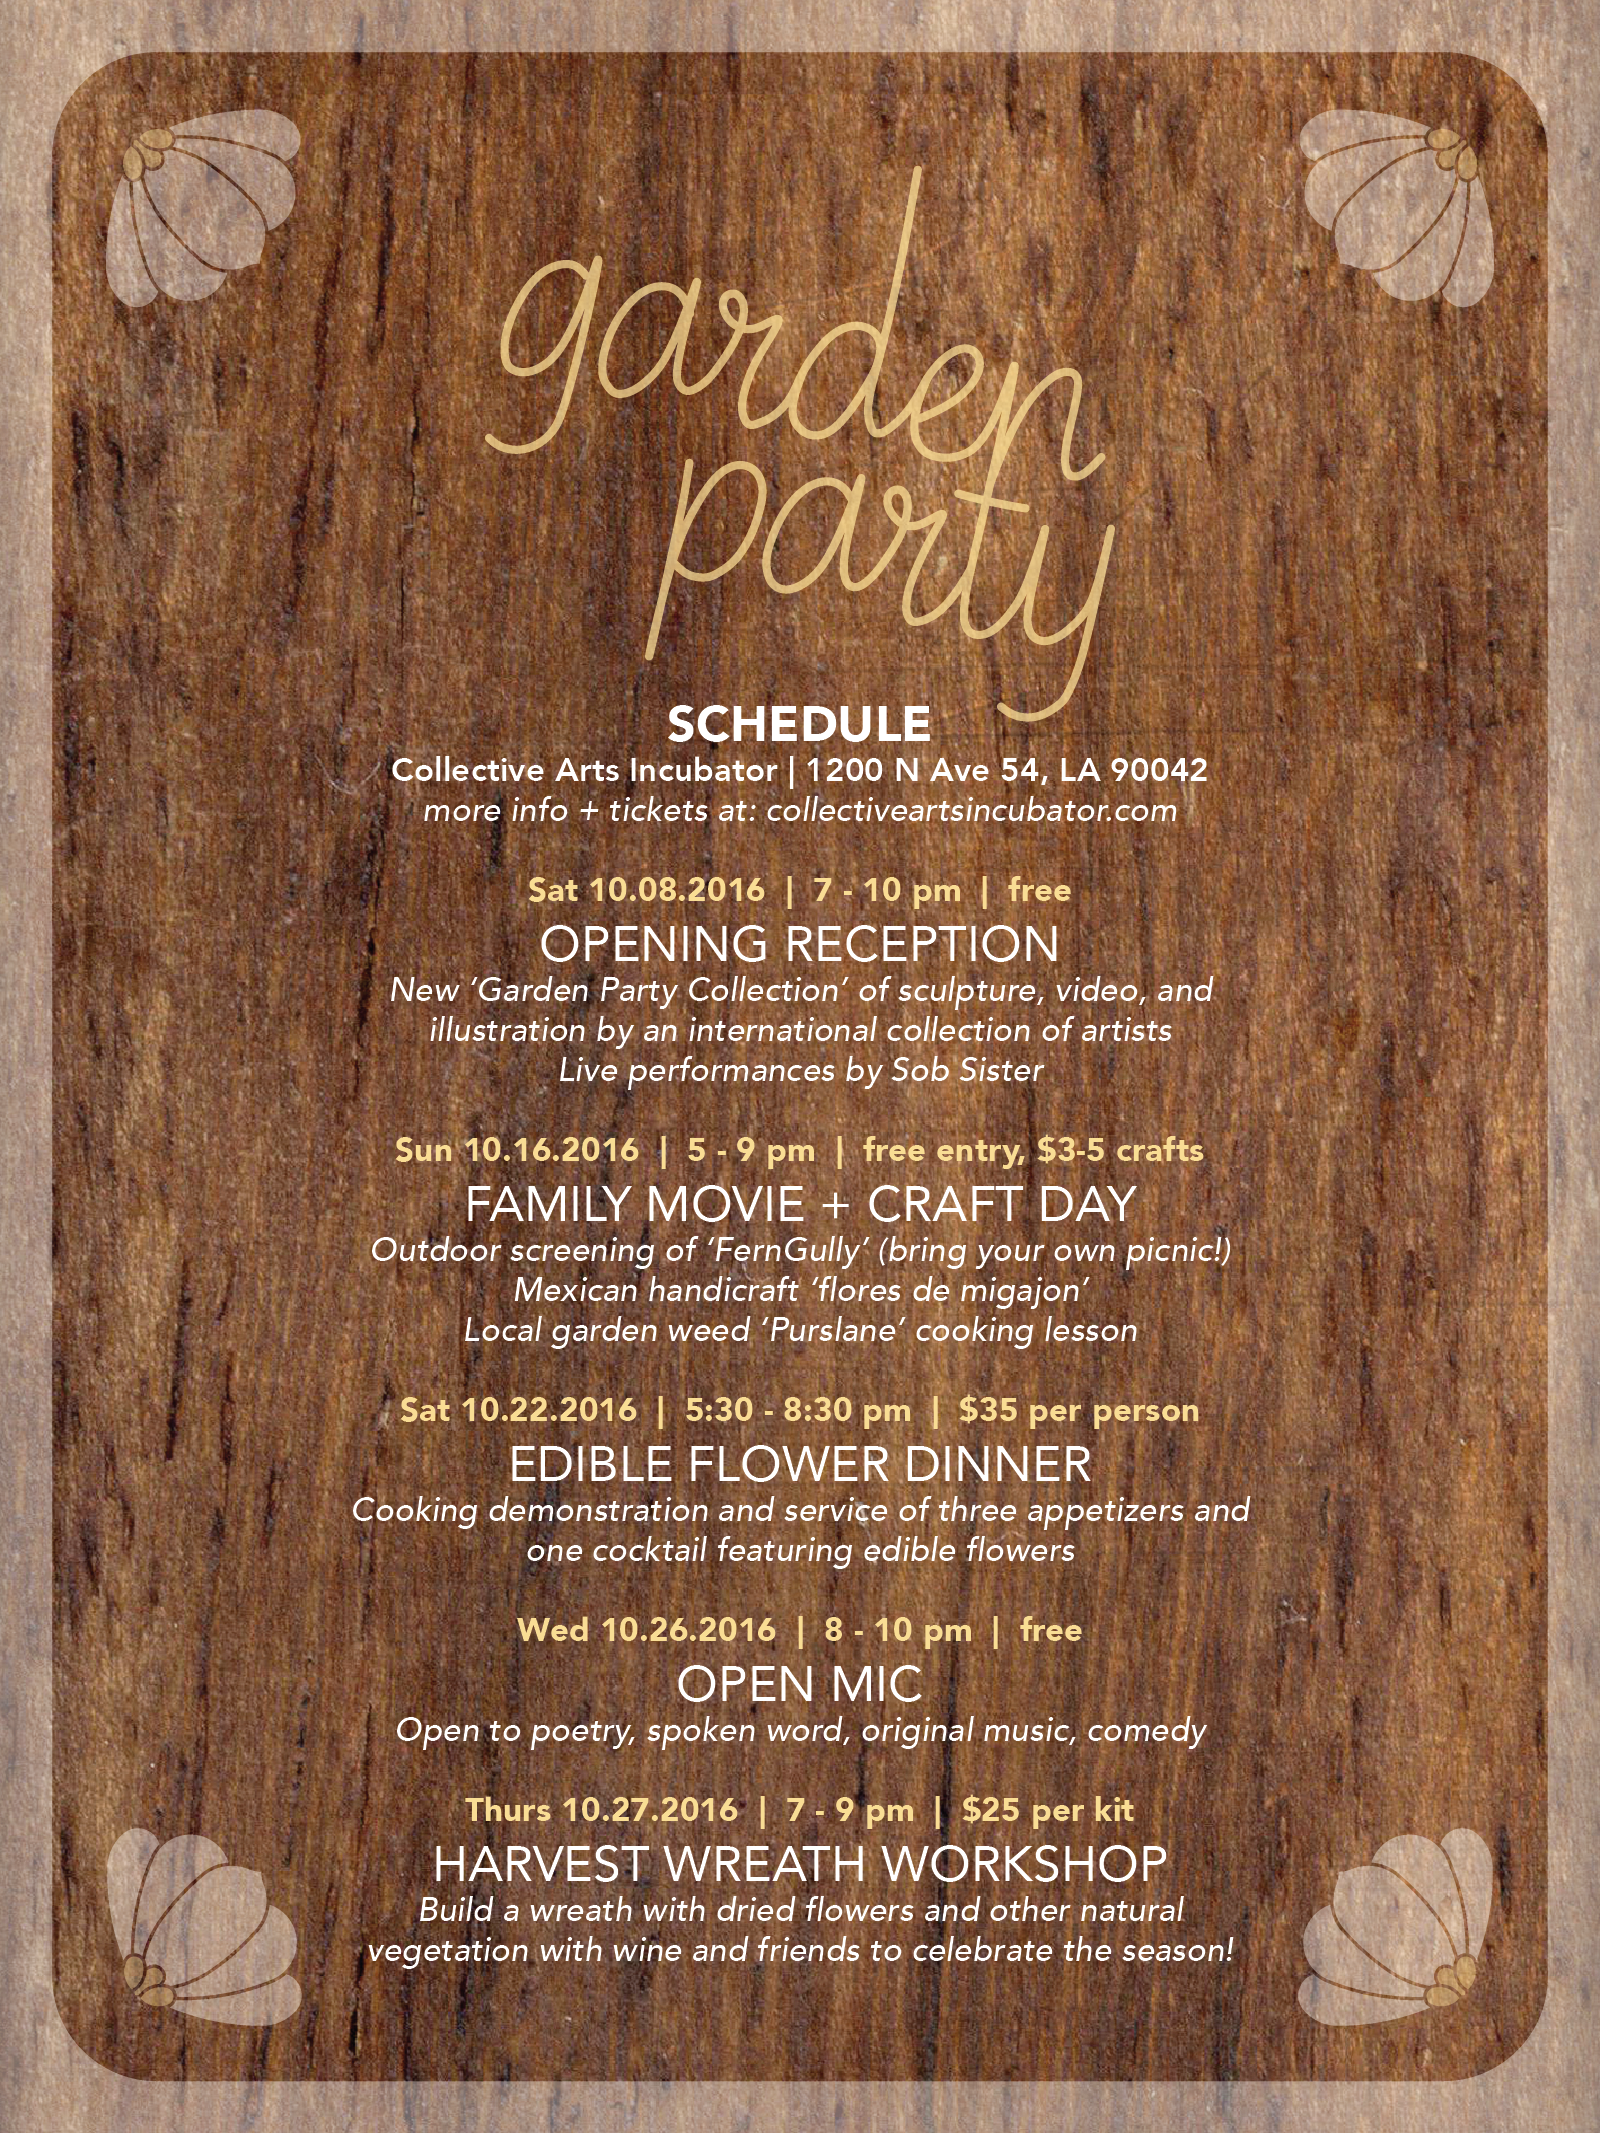 garden
party
SCHEDULE
Collective Arts Incubator | 1200 N Ave 54, LA 90042
more info + tickets at: collectiveartsincubator.com
Sat 10.08.2016 | 7 - 10 pm | free
OPENING RECEPTION
New ‘Garden Party Collection’ of sculpture, video, and
illustration by an international collection of artists
Live performances by Sob Sister
Sun 10.16.2016 | 5 - 9 pm | free entry, $3-5 crafts
FAMILY MOVIE + CRAFT DAY
Outdoor screening of ‘FernGully’ (bring your own picnic!)
Mexican handicraft ‘flores de migajon’
Local garden weed ‘Purslane’ cooking lesson
Sat 10.22.2016 | 5:30 - 8:30 pm | $35 per person
EDIBLE FLOWER DINNER
Cooking demonstration and service of three appetizers and
one cocktail featuring edible flowers
Wed 10.26.2016 | 8 - 10 pm | free
OPEN MIC
Open to poetry, spoken word, original music, comedy
Thurs 10.27.2016 | 7 - 9 pm | $25 per kit
HARVEST WREATH WORKSHOP
Build a wreath with dried flowers and other natural
vegetation with wine and friends to celebrate the season!